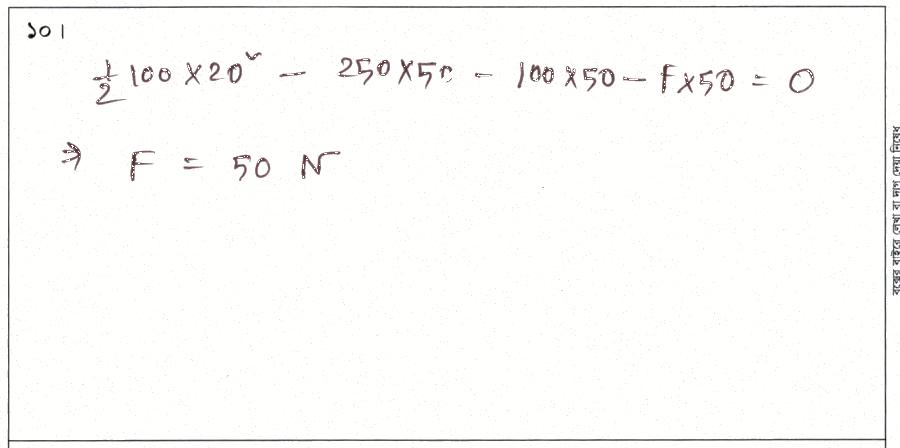 ১০।
½ 100 × 20² − 250 × 50 − 100 × 50 − F × 50 = 0
⇒ F = 50 N
বক্সের বাইরে লেখা বা দাগ দেয়া নিষেধ